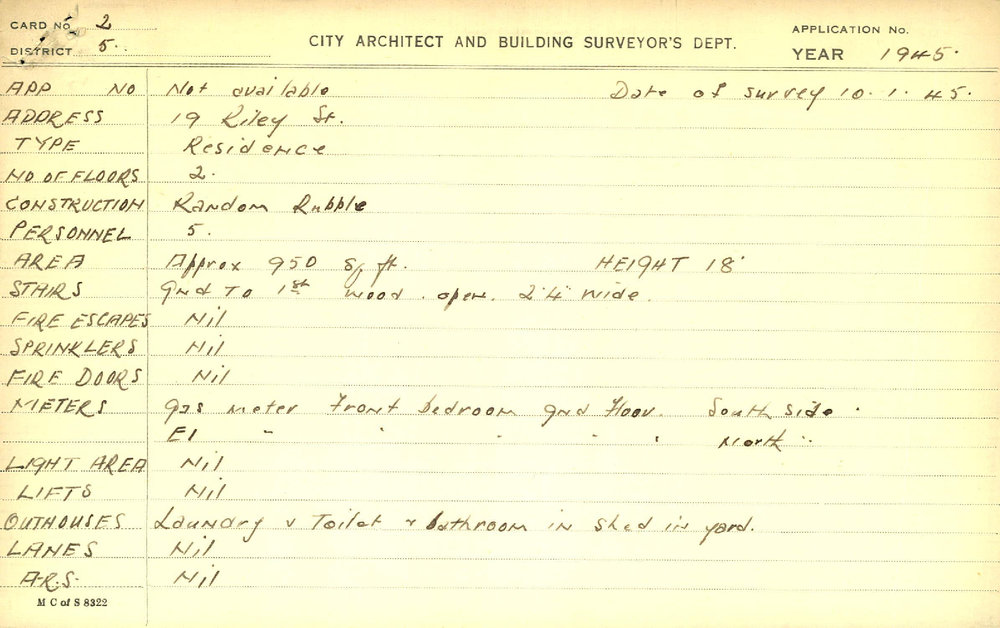 CARD No. 2
DISTRICT 5.
CITY ARCHITECT AND BUILDING SURVEYOR'S DEPT.
APPLICATION No.
YEAR 1945.
APP NO Not available Date of survey 10.1.45.
ADDRESS 19 Riley St.
TYPE Residence
NO OF FLOORS 2.
CONSTRUCTION Random Rubble
PERSONNEL 5.
AREA Approx 950 sq ft. HEIGHT 18'
STAIRS Gnd to 1st wood. open. 2'4" wide.
FIRE ESCAPES Nil
SPRINKLERS Nil
FIRE DOORS Nil
METERS Gas meter Front bedroom gnd floor. South side.
El " " " " " North "
LIGHT AREA Nil
LIFTS Nil
OUTHOUSES Laundry & Toilet & bathroom in shed in yard.
LANES Nil
A.R.S. Nil
M C of S 8322